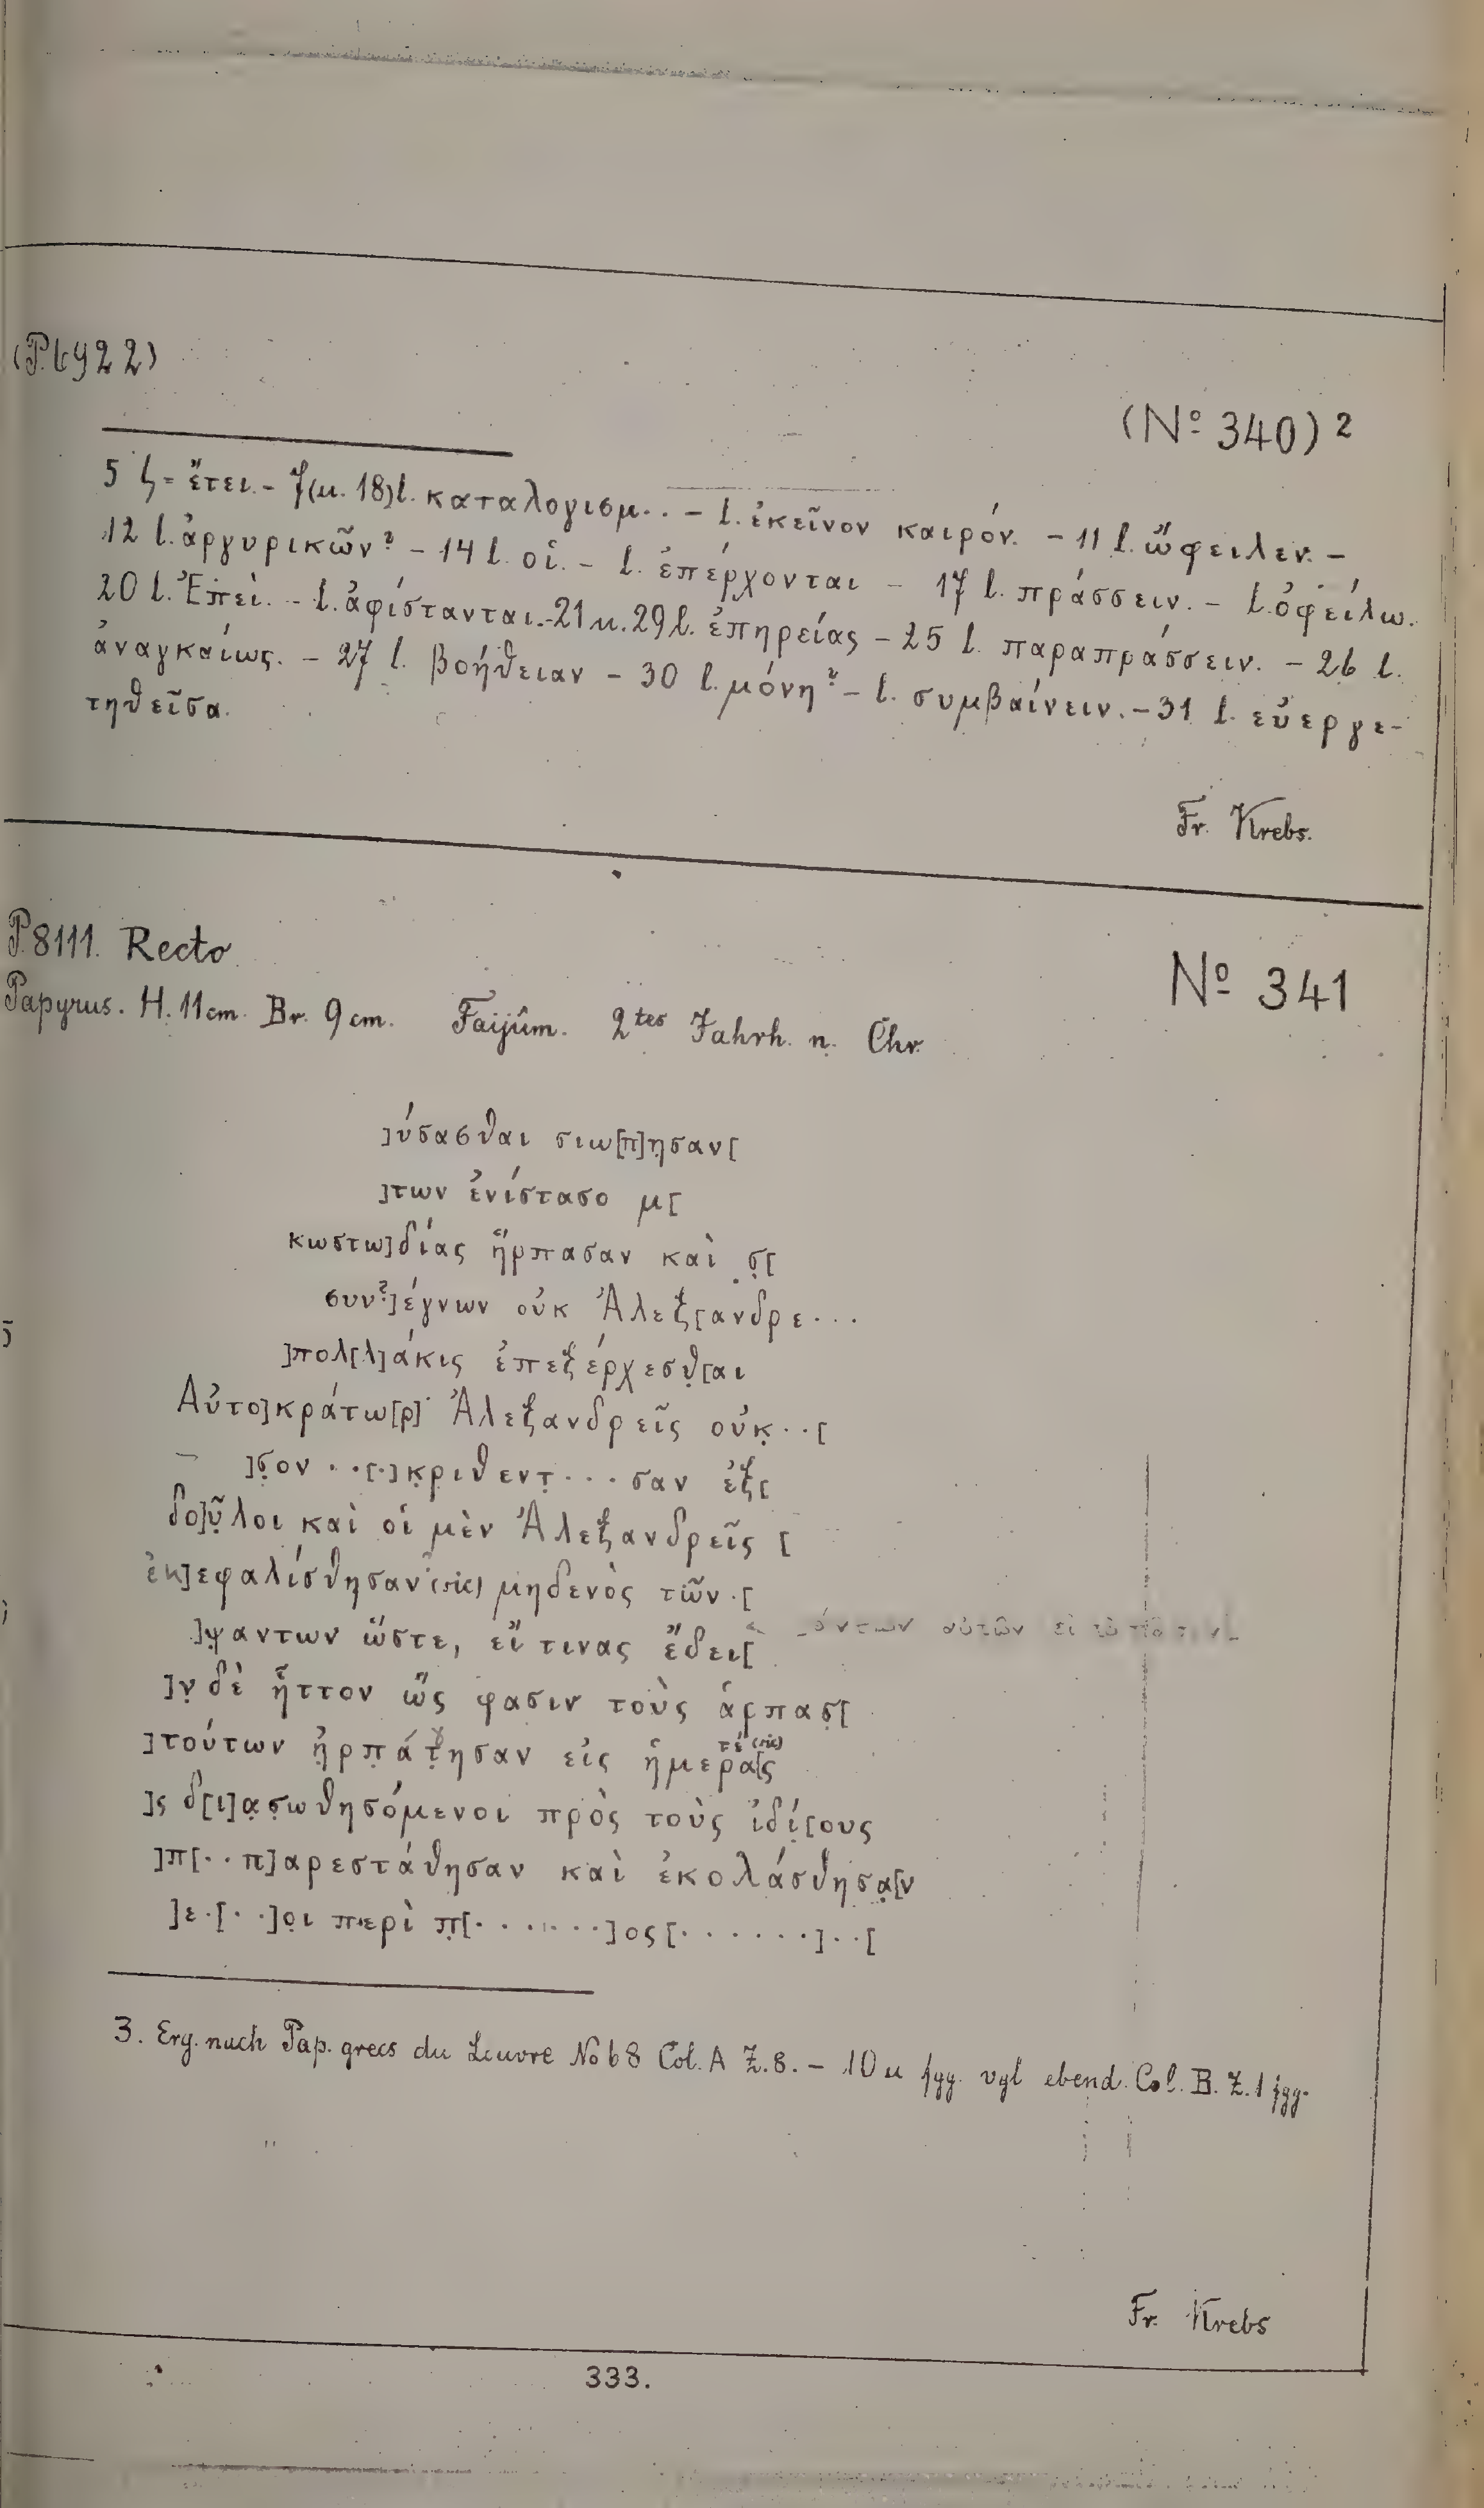 (P 6922)
(Nº 340) 2
5 ϛ = ἔτει. - 7(u. 18) l. καταλογισμ.. - l. ἐκεῖνον καιρόν. - 11 l. ὤφειλεν. -
12 l. ἀργυρικῶν? - 14 l. οἱ. - l. ἐπέρχονται - 17 l. πράσσειν. - l. ὀφείλω.
20 l. Ἐπεὶ. - l. ἀφίστανται. - 21 u. 29 l. ἐπηρείας - 25 l. παραπράσσειν. - 26 l.
ἀναγκαίως. - 27 l. βοήθειαν - 30 l. μόνη? - l. συμβαίνειν. - 31 l. εὐεργε-
τηθεῖσα.
Fr. Krebs.
P 8111. Recto
Nº 341
Papyrus. H. 11 cm. Br. 9 cm. Faijûm. 2tes Jahrh. n. Chr.
]ύσασθαι σιω[π]ησαν[
]των ἐνίστασο μ[
κωστω]δίας ἥρπασαν καὶ σ̣[
συν?]έγνων οὐκ Ἀλεξ[ανδρε...
]πολ[λ]άκις ἐπεξέρχεσθ̣[αι
Αὐτο]κράτω[ρ] Ἀλεξανδρεῖς οὐκ̣..[
]σ̣ον ..[.]κ̣ριθεντ̣...σαν ἐξ[
δο]ῦ̣λοι καὶ οἱ μὲν Ἀλεξανδρεῖς [
ἐκ]εφαλίσθησαν (sic) μηδενὸς τῶν .[
]ψ̣αντων ὥστε, εἴ τινας ἔδει[
]ν̣ δὲ ἧττον ὥς φασιν τοὺς ἁρπασ̣[
]τούτων ἡ̣ρπ̣άγ̣ησαν εἰς ἡμερα[ς
τέ (sic)
]ς δ[ι]α̣σ̣ωθησόμενοι πρὸς τοὺς ἰδί̣[ους
]π[..π]αρεστάθησαν καὶ ἐκολάσθησα̣[ν
]ε.[..]ο̣ι περὶ π̣[.......]ος[......]..[
3. Erg. nach Pap. grecs du Louvre No 68 Col. A Z. 8. - 10 u fgg. vgl ebend. Col. B. Z. 1 fgg.
Fr. Krebs
333.